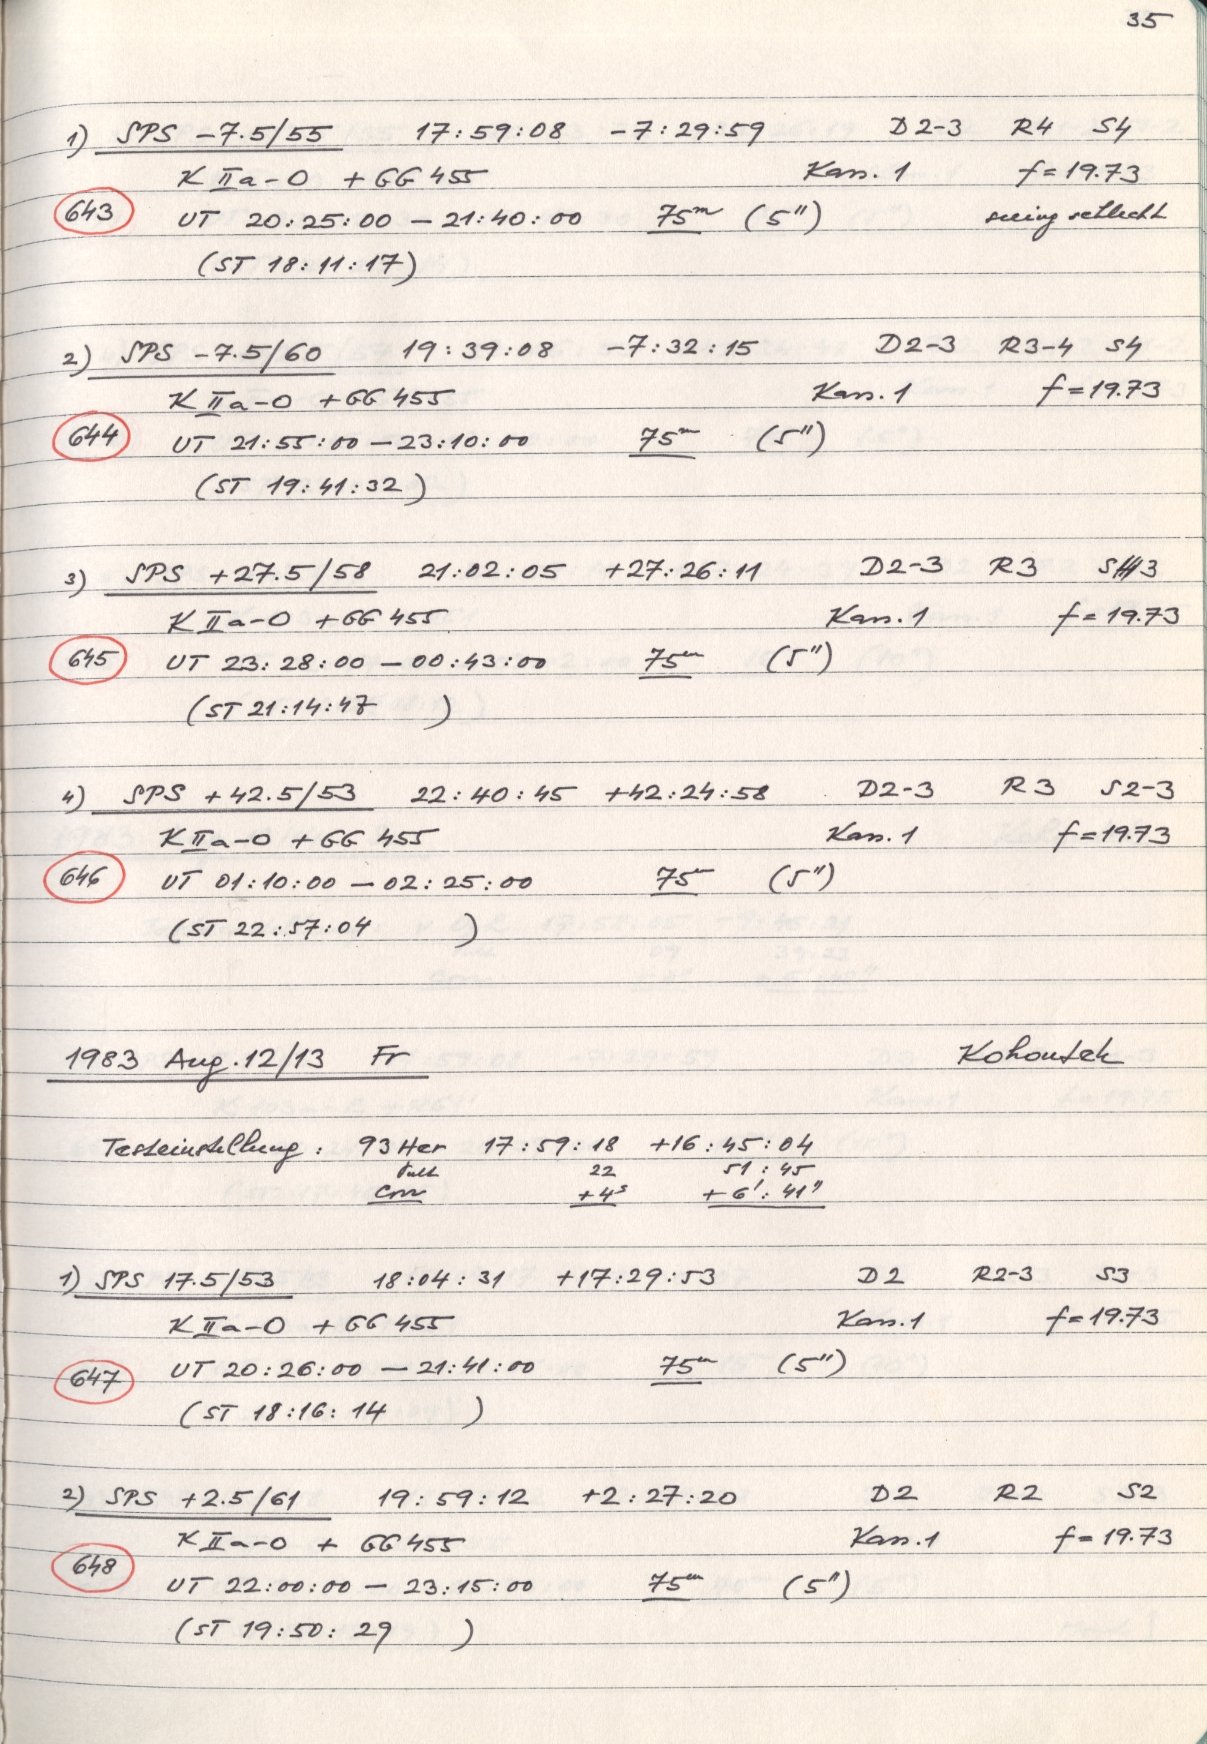 35
1) SPS -7.5/55 17:59:08 -7:29:59 D2-3 R4 S4
K IIa-O + GG 455 Kass. 1 f=19.73
643 UT 20:25:00 — 21:40:00 75m (5") seeing schlecht
(ST 18:11:17)
2) SPS -7.5/60 19:39:08 -7:32:15 D2-3 R3-4 S4
K IIa-O + GG 455 Kass. 1 f=19.73
644 UT 21:55:00 — 23:10:00 75m (5")
(ST 19:41:32)
3) SPS +27.5/58 21:02:05 +27:26:11 D2-3 R3 S3
K IIa-O + GG 455 Kass. 1 f=19.73
645 UT 23:28:00 — 00:43:00 75m (5")
(ST 21:14:47 )
4) SPS +42.5/53 22:40:45 +42:24:58 D2-3 R3 S2-3
K IIa-O + GG 455 Kass. 1 f=19.73
646 UT 01:10:00 — 02:25:00 75m (5")
(ST 22:57:04 )
1983 Aug. 12/13 Fr Kohoutek
Testeinstellung: 93 Her 17:59:18 +16:45:04
22 51:45
Corr +4s +6':41"
1) SPS 17.5/53 18:04:31 +17:29:53 D2 R2-3 S3
K IIa-O + GG 455 Kass. 1 f=19.73
647 UT 20:26:00 — 21:41:00 75m (5")
(ST 18:16:14 )
2) SPS +2.5/61 19:59:12 +2:27:20 D2 R2 S2
K IIa-O + GG 455 Kass. 1 f=19.73
648 UT 22:00:00 — 23:15:00 75m (5")
(ST 19:50:29 )